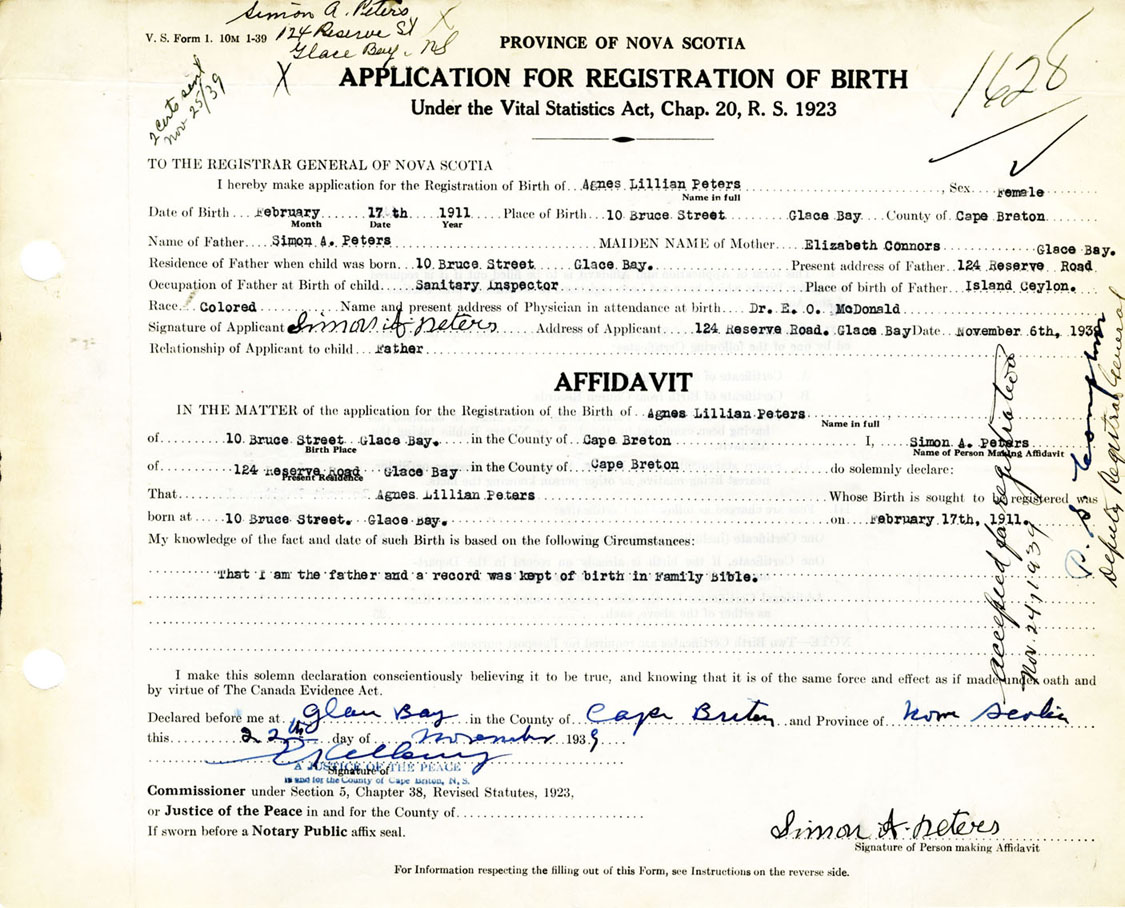 Simon A. Peters
V. S. Form 1. 10M 1-39 124 Reserve St
Glace Bay. NS
X
X
2 Certs sent
Nov 25/39
1628
PROVINCE OF NOVA SCOTIA
APPLICATION FOR REGISTRATION OF BIRTH
Under the Vital Statistics Act, Chap. 20, R. S. 1923
TO THE REGISTRAR GENERAL OF NOVA SCOTIA
I hereby make application for the Registration of Birth of Agnes Lillian Peters, Sex Female
Name in full
Date of Birth February 17 th 1911 Place of Birth 10 Bruce Street Glace Bay County of Cape Breton
Month Date Year
Name of Father Simon A. Peters MAIDEN NAME of Mother Elizabeth Connors
Glace Bay.
Residence of Father when child was born 10 Bruce Street Glace Bay. Present address of Father 124 Reserve Road
Occupation of Father at Birth of child Sanitary Inspector Place of birth of Father Island Ceylon.
Race Colored Name and present address of Physician in attendance at birth Dr. E. O. McDonald
Signature of Applicant Simon A Peters Address of Applicant 124 Reserve Road. Glace Bay Date November 6th, 193
Relationship of Applicant to child Father
AFFIDAVIT
IN THE MATTER of the application for the Registration of the Birth of Agnes Lillian Peters,
Name in full
of 10 Bruce Street Glace Bay. in the County of Cape Breton I, Simon A. Peters
Birth Place Name of Person Making Affidavit
of 124 Reserve Road Glace Bay in the County of Cape Breton do solemnly declare:
Present Residence
That Agnes Lillian Peters Whose Birth is sought to be registered was
born at 10 Bruce Street. Glace Bay. on February 17th, 1911.
My knowledge of the fact and date of such Birth is based on the following Circumstances:
That I am the father and a record was kept of birth in Family Bible.
I make this solemn declaration conscientiously believing it to be true, and knowing that it is of the same force and effect as if made under oath and
by virtue of The Canada Evidence Act.
Declared before me at Glace Bay in the County of Cape Breton and Province of Nova Scotia
this 22nd day of November 1939
A JUSTICE OF THE PEACE
Signature of
in and for the County of Cape Breton, N. S.
Commissioner under Section 5, Chapter 38, Revised Statutes, 1923,
or Justice of the Peace in and for the County of
If sworn before a Notary Public affix seal.
Simon A. Peters
Signature of Person making Affidavit
For Information respecting the filling out of this Form, see Instructions on the reverse side.
accepted for registration
Nov. 24, 1939
Deputy Registrar General